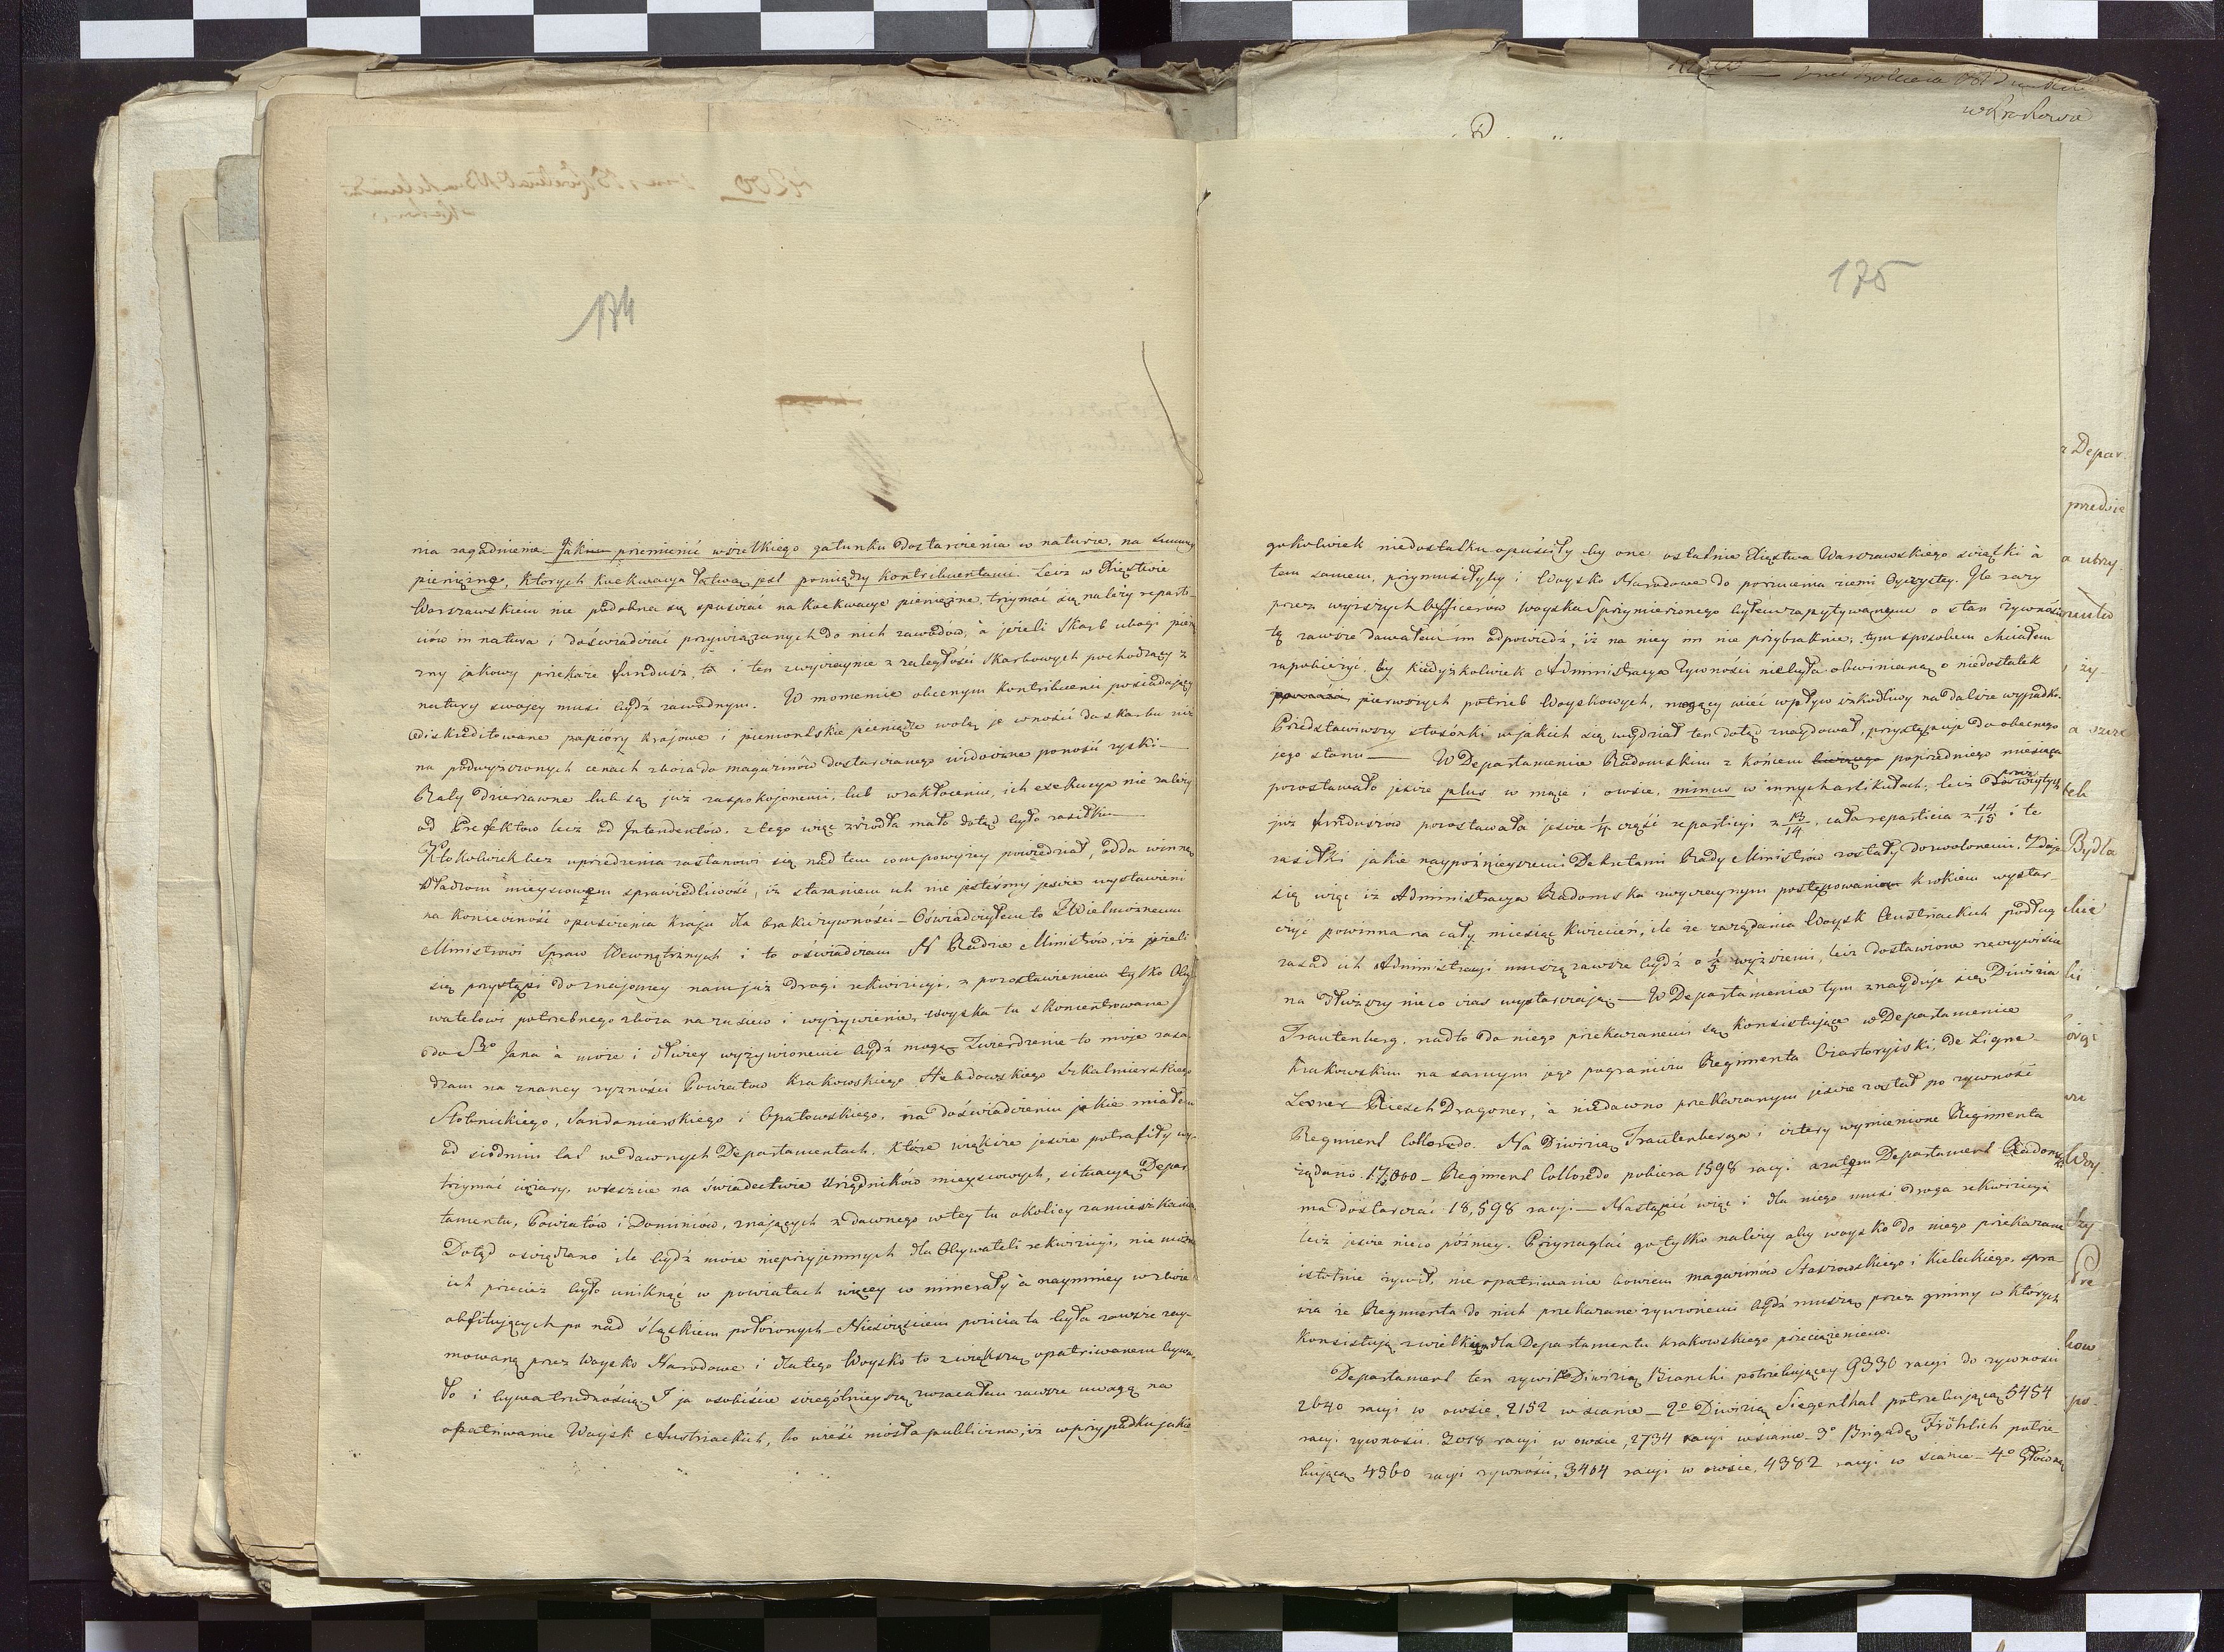 w Krakowie
174
nia zagadnienie Jak przemienić wszelkiego gatunku dostarczenia w naturze, na summy
pieniężne, których koekwacya łatwą jest pomiędzy kontribuentami. Lecz w Xięstwie
Warszawskiem nie podobna się spuszczać na koekwacye pieniężne, trzymać się należy reparti-
ciów in natura i doświadczać przywiązanych do nich zawodów, a jeżeli Skarb ubogi pien
zny jakowy przekaże fundusz, to i ten zwyczaynie z zaległości Skarbowych pochodzący z
natury swojey musi bydź zawodnym. W momencie obecnym kontribuenci posiadający
zdiskreditowane papiory krajowe i piemontskie pieniądze wolą je wnosić do skarbu niż
na podwyższonych cenach zboża do magazinów dostarczanego widoczne ponosić ryski —
Raty dzierżawne lub są już zaspokojonemi, lub w zakłóceniu, ich exekucya nie zależy
od Prefektów lecz od Intendentów. z tego więc źródła mało dotąd było zasiłku —
Ktokolwiek bez uprzedzenia zastanowi się nad tem com powyżey powiedział, odda winną
Władzom mieyscowym sprawiedliwość, iż staraniem ich nie jesteśmy jeszcze wystawieni
na konieczność opuszczenia kraju dla braku żywności — Oświadczyłem to JWielmożnemu
Ministrowi Spraw Wewnętrznych i to oświadczam N Radzie Ministrów, iż jeżeli
się przystąpi do znajomey nam już drogi rekwizicyi, z pozostawieniem tylko Oby
watelowi potrzebnego zboża na zasiew i wyżywienie, woyska tu skoncentrowane
do Sgo Jana a może i dłużey wyżywionemi bydź mogą. Twierdzenie to moje zasa
dzam na znaney żyzności Powiatów Krakowskiego Hebdowskiego Szkalmierskiego
Stobnickiego, Sandomierskiego i Opatowskiego, na doświadczeniu jakie miałem
od siedmiu lat w dawnych Departamentach, które większe jeszcze potrafiły wy-
trzymać ciężary, wreszcie na świadectwie Urzędników mieyscowych, situacyą Depar
tamentu, Powiatów i Dominiów, znających z dawnego w tey tu okolicy zamieszkania
Dotąd oszczędzano ile bydź może nieprzyjemnych dla Obywateli rekwizicyi, nie można
ich przecież było uniknąć w powiatach więcey w minerały a naymniey w zboże
obfitujących po nad Śląskiem położonych — Nieszczęściem pozicia ta była zawsze zay-
mowaną przez Woysko Narodowe i dla tego Woysko to z większą opatriwanem bywa-
ło i bywa trudnością. I ja osobiście szczególnieyszą zwracałem zawsze uwagę na
opatriwanie Woysk Austriackich, bo wieść niosła publiczna, iż w przypadku jakie
175
gokolwiek niedostatku opuściły by one ostatnie Xięstwa Warszawskiego cząstki a
tem samem, przymusiłyby i Woysko Narodowe do porzucenia ziemi Oyczystey. Ile razy
przez wyższych Officerów woyska Sprzymierzonego byłem zapytywanym o stan żywności
tę zawsze dawałem im odpowiedź, iż na niey im nie przybraknie; tym sposobem chciałem
zapobieżyć, by kiedyżkolwiek Administracya żywności niebyła obwinianą o niedostatek
pierwszych potrzeb Woyskowych, mogący mieć wpływ szkodliwy na dalsze wypadki.
Przedstawiwszy stosónki w jakich się wydział ten dotąd znaydował, przystępuje do obecnego
jego stanu — W Departamencie Radomskim z końcem bieżącego poprzedniego miesiąca
pozostawało jeszcze plus w mące i owsie, minus w innych artikułach; lecz prócz
już funduszów pozostawała jeszcze 1/4 część reparticyi z 13/14, cała reparticia z 14/15 i te
zasiłki jakie naypóźnieyszemi Dekretami Rady Ministrów zostały dozwolonemi. Zdaje
się więc iż Administracya Radomska zwyczaynym postępowania krokiem wystar
czyć powinna na cały miesiąc Kwiecień, ile że zarządania Woysk Austriackich podług
zasad ich Administracyi muszą zawsze bydź o 1/3 wyższemi, lecz dostawione rzeczywiście
na dłuższy nieco czas wystarczają — W Departamencie tym znayduje się Diwizia
Trautenberg, nadto do niego przekazanemi są konsistujące w Departamencie
Krakowskim na samym jego pograniczu Regimenta Czartoryiski, De Ligne
Levner Riesch Dragoner, a niedawno przekazanym jeszcze został po żywność
Regiment Colloredo. Na Diwizią Trautenberga i cztery wymienione Regimenta
żądano 17,000 — Regiment Colloredo pobiera 1598 racyi a zatem Departament Radomski
ma dostarczać 18,598 racyi — Nastąpić więc i dla niego musi droga rekwizicyi
lecz jeszcze nieco późniey. Przynaglać go tylko należy aby woysko do niego przekazane
istotnie żywił, nie opatriwanie bowiem magazinów Staszowskiego i Kieleckiego, spra
wia że Regimenta do nich przekazane żywionemi bydź muszą przez gminy w których
konsistują, z wielkiem dla Departamentu Krakowskiego przeciążeniem.
Departament ten żywi 1o Diwizią Bianchi potrzebującey 9330 racyi do żywności
2640 racyi w owsie, 2152 w sianie — 2o Diwizią Siegenthal potrzebującą 5454
racyi żywności, 3018 racyi w owsie, 2734 racyi w sianie — 3o Brigadę Fröhlich potrze-
bującą 4960 racyi żywności, 3464 racyi w owsie, 4382 racyi w sianie — 4o Główną
z Depar.
przedsię
a utrzy.
ży
a szcze
Bydła
kow
po.